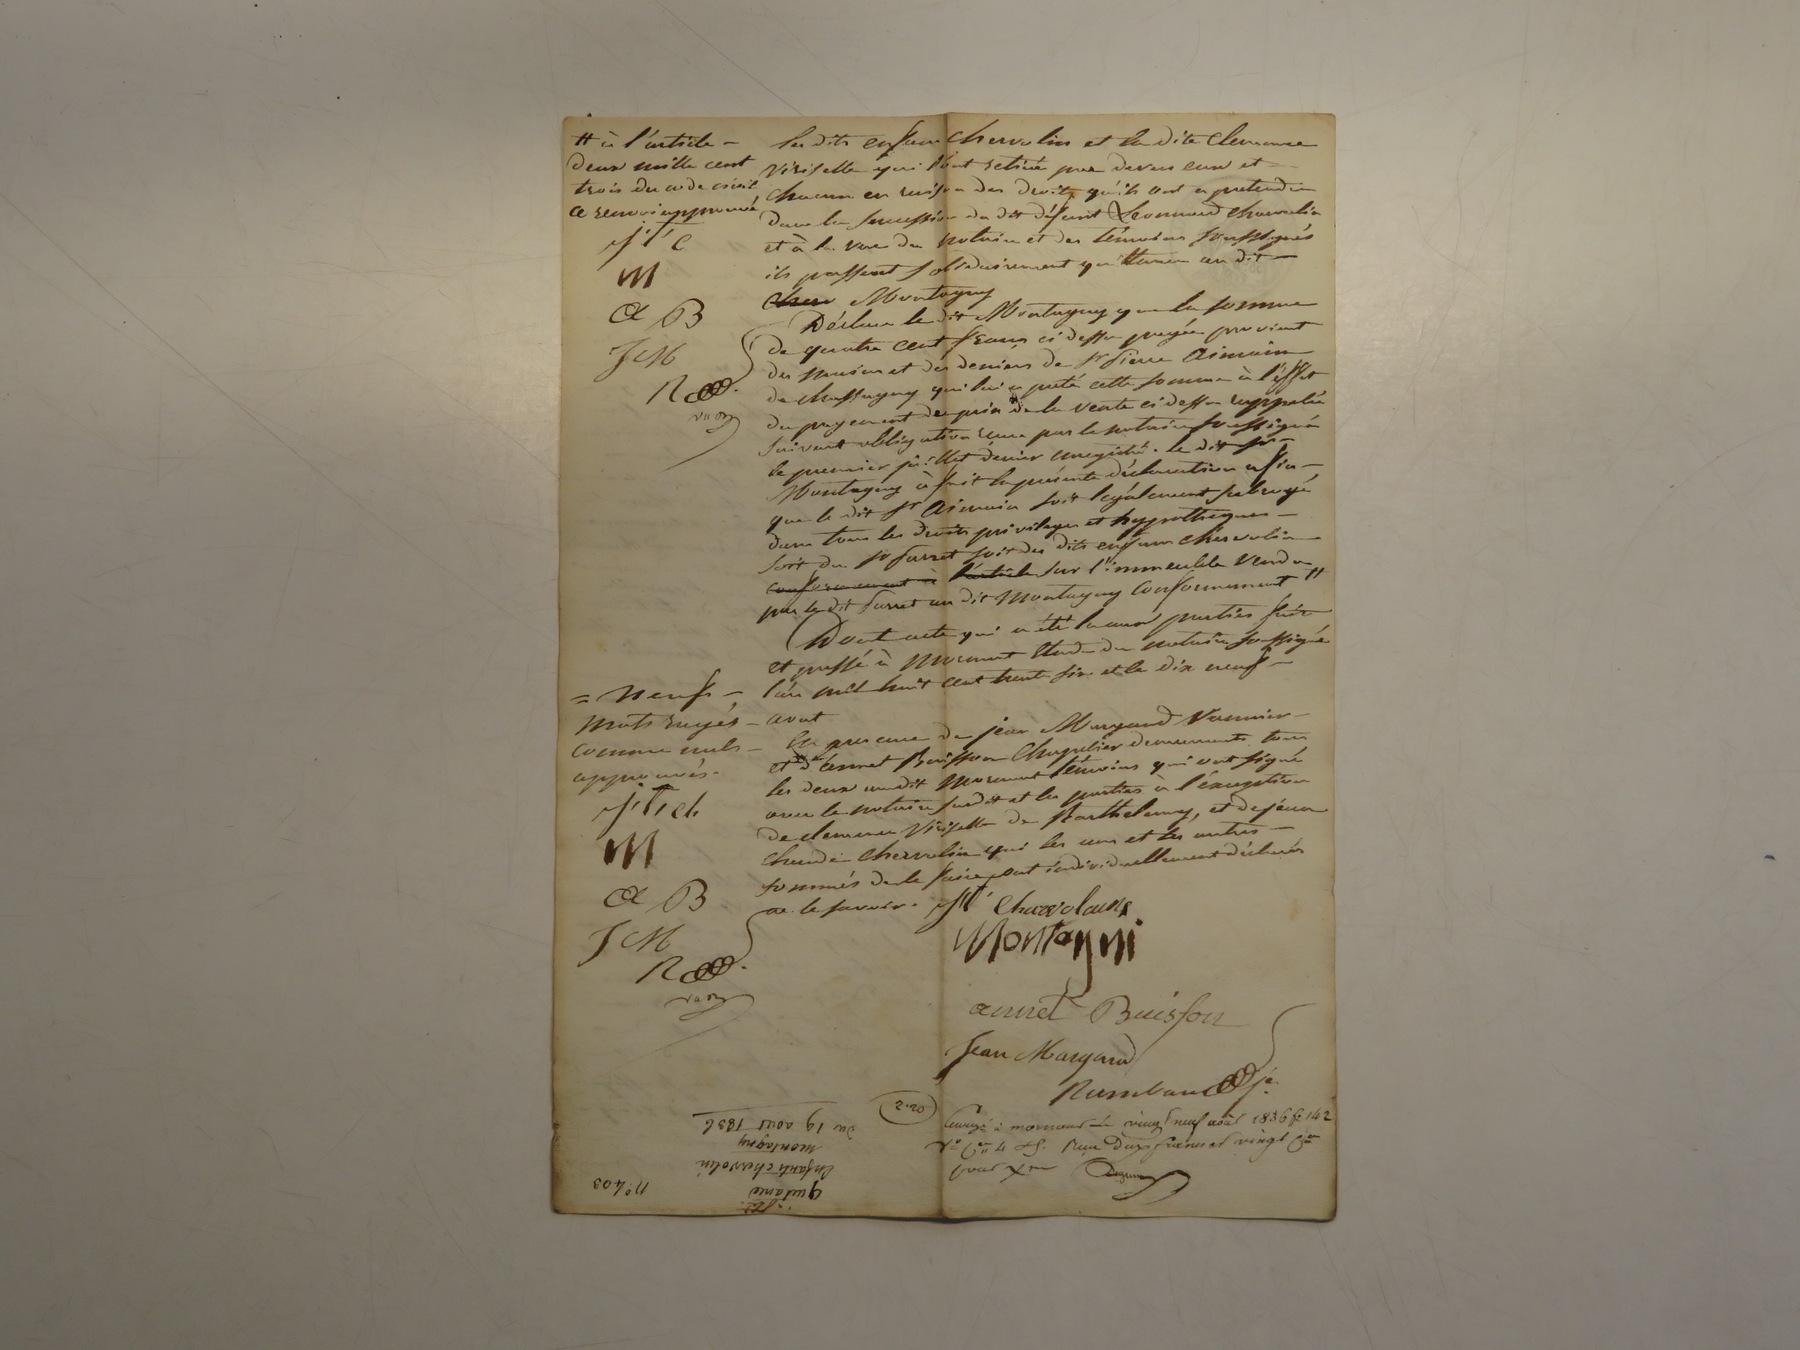 # à l'article –
deux mille cent
trois du code civil
ce renvoi approuvé
M
A B
J M
les dits enfans Chervolin et la dite Clemence
Viriselle qui l'ont retirée par devers eux et –
chacun en raison des droits qu'ils ont a pretendre
dans la succession du dit défunt Leonnard Chervolin
et à la vue du notaire et des témoins soussignés
ils passent solidairement quittance au dit –
Montagny
Déclare le dit Montagny que la somme
de quatre cent francs ci dessus payée provient
des mains et des deniers de Sr pierre Aimain
de chassagny qui lui a prêté cette somme à l'effet
du payement du prix de la vente ci dessus rappelée
suivant obligation reçue par le notaire soussigné
le premier juillet dernier enregistré. le dit Sr –
Montagny à fait la présente déclaration afin –
que le dit Sr Aimain soit légalement subrogé
dans tous les droits privileges et hypotheques –
soit du Sr Farret soit des dits enfans Chervolin –
conformement à l'article sur l'immeuble vendu
par le dit Farret au dit Montagny conformement #
Dont acte qui a été lu aux parties fait
et passé à Mornant Etude du notaire soussigné
l'an mil huit cent trente six et le dix neuf –
= Neufs –
mots rayés –
comme nuls –
approuvés.
M
A B
J M
aout
En presence de jean Margand Vannier –
et d'annet Buisson Chapelier demeurants tous
les deux au dit Mornant témoins qui ont signé
avec le notaire susdit et les parties à l'éxception
de clemence Viriselle de Barthelemy, et de jean
claude Chervolin qui les uns et les autres –
sommés de le faire ont individuellement déclarés
ne le savoir.
Chervolains
Montagni
annet Buisson
Jean Margand
Rambaud je.
2.20
Enregé à mornant le vingt neuf août 1836 fo 142
Reçu Deux francs et vingt cmes
pour Xme
quitance
Enfants chervolin
montagny
du 19 aout 1836
No. 403